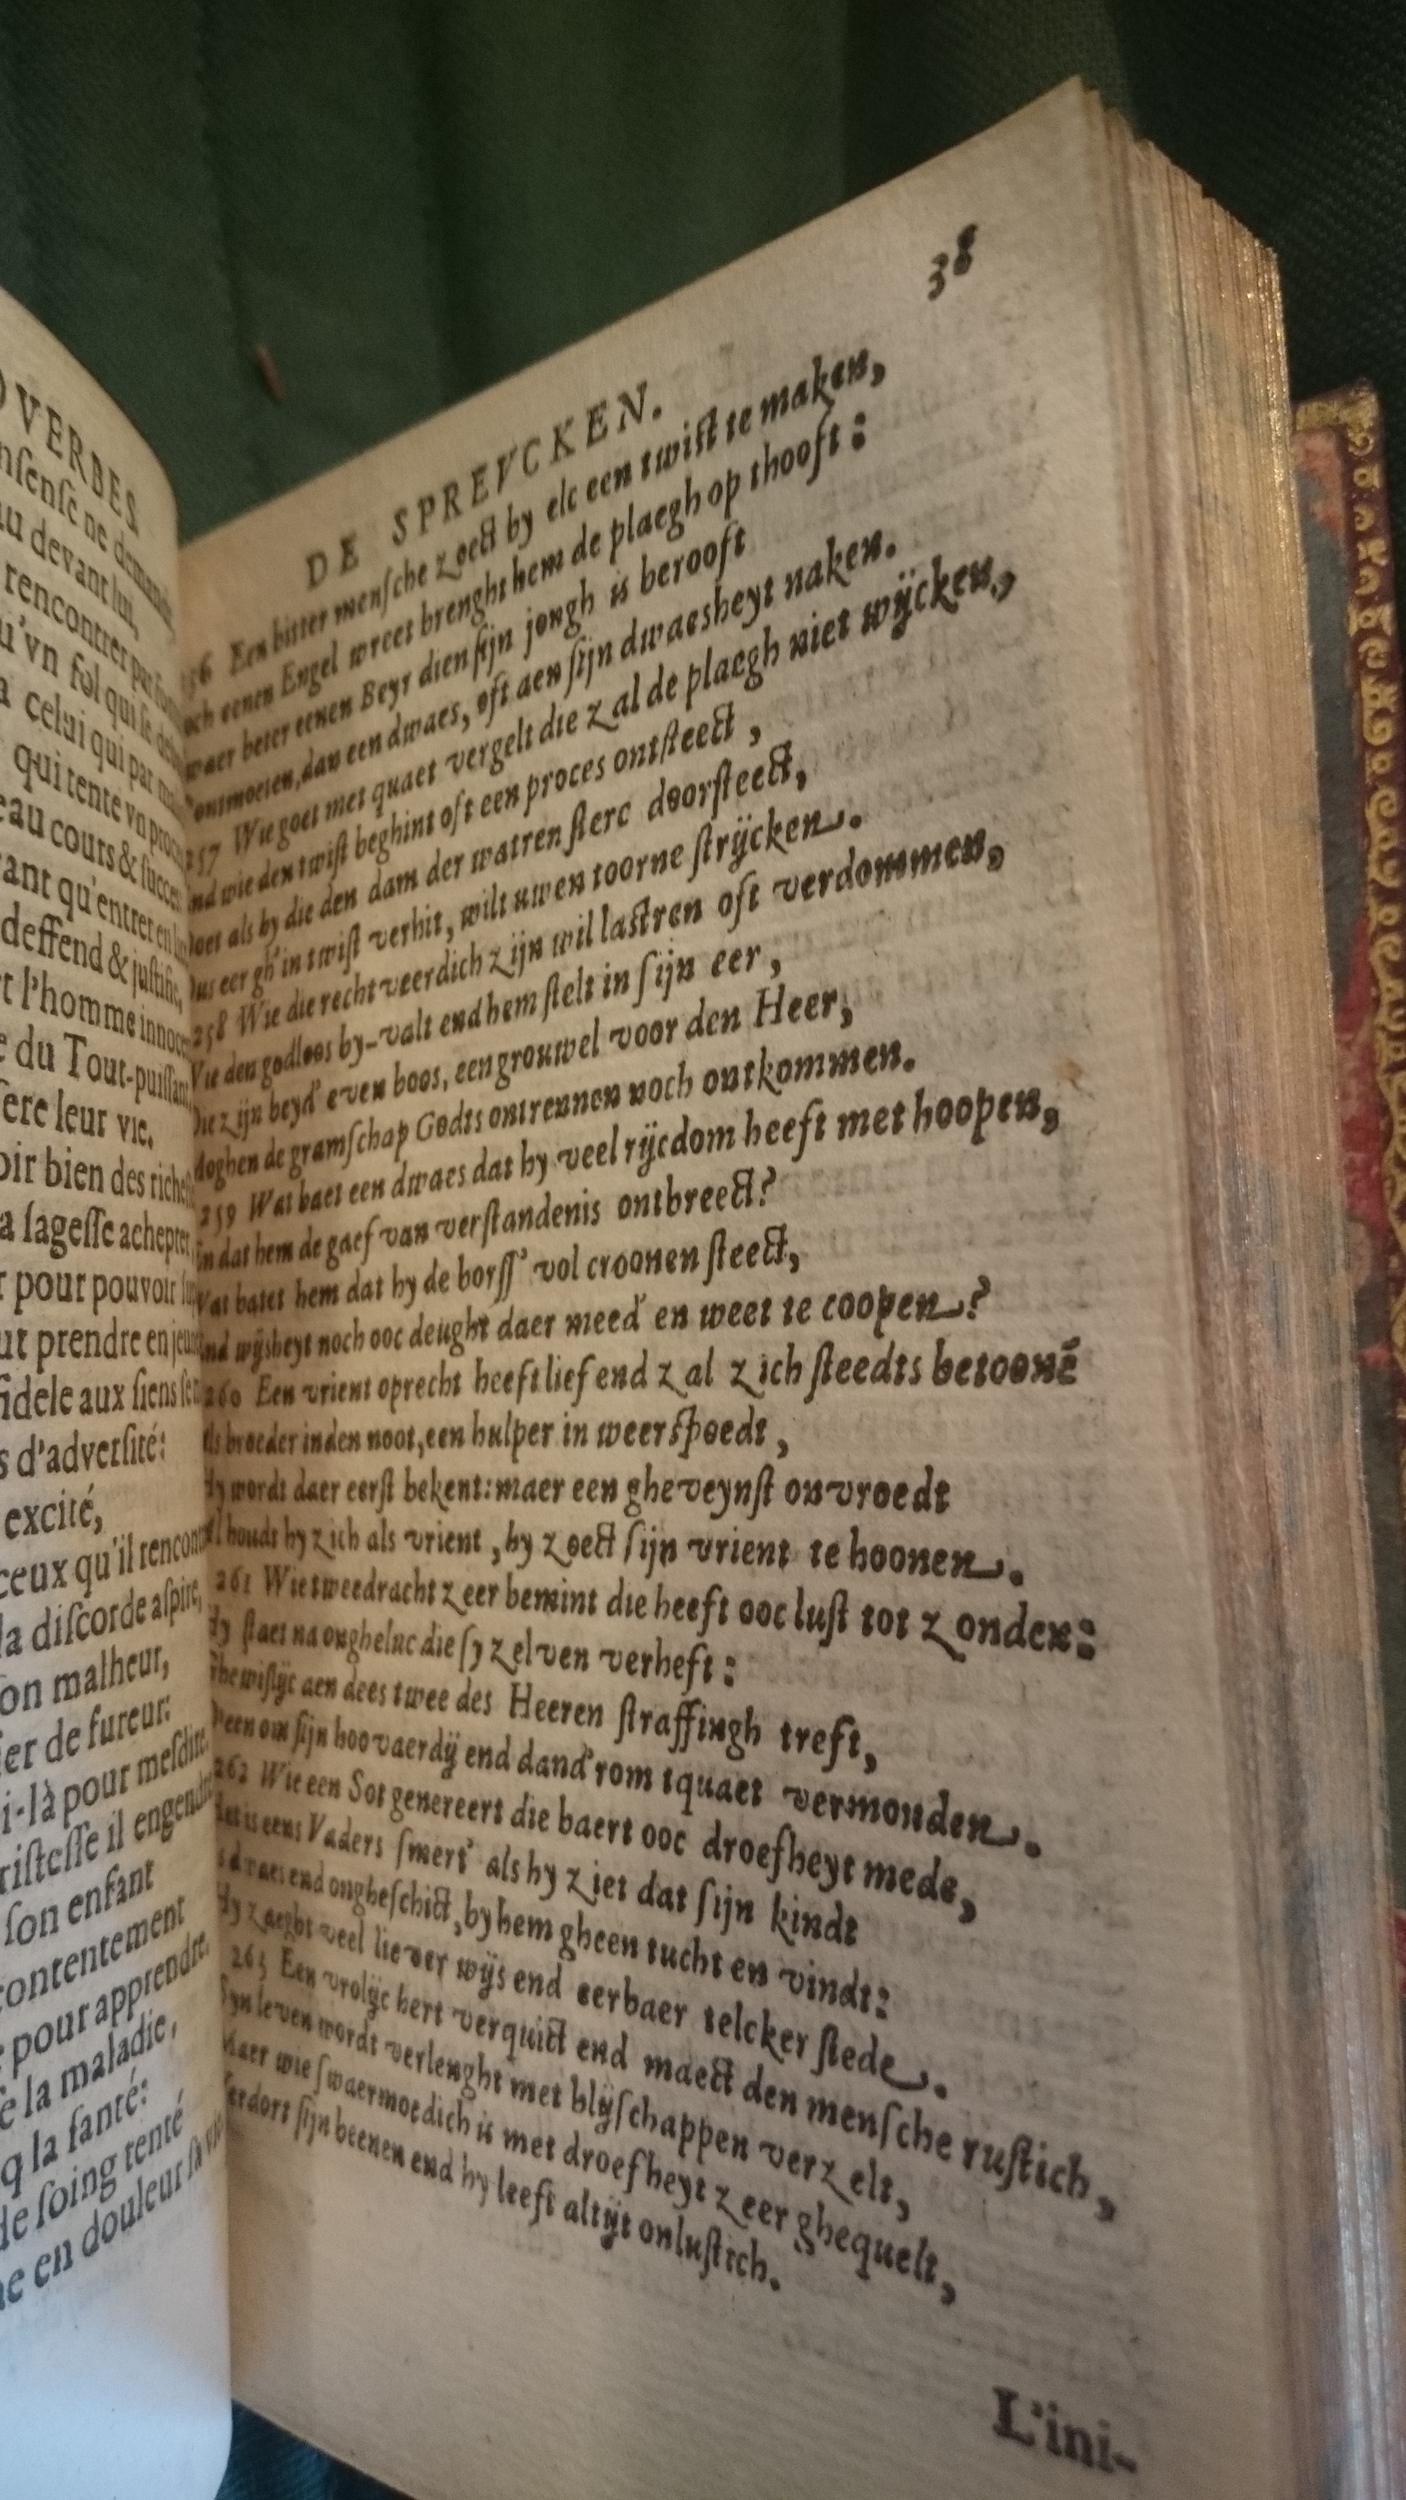 OVERBES
ne
au devant lui,
rencontrer par
u'vn fol qui se
celui qui par
qui tente vn
eau cours & succes
ant qu'entrer en
deffend & justifie,
t l'homme innocent
e du Tout-puissant
ere leur vie.
oir bien des
a sagesse achepter
r pour pouvoir
ut prendre en
fidele aux siens
s d'adversité:
excité,
ceux qu'il
la discorde aspire,
on malheur,
er de fureur:
i-là pour mesdire.
il
son enfant
contentement
pour apprendre.
la maladie,
q la santé:
de soing tenté
en douleur sa vie
DE SPREVCKEN.
38
Een bitter mensche zoect by elc een twist te maken,
eenen Engel wreet brenght hem de plaegh op thooft:
waer beter eenen Beyr dien sijn jongh is berooft
ontmoeten, dan een dwaes, oft aen sijn dwaesheyt naken.
257 Wie goet met quaet vergelt die zal de plaegh niet wijcken,
wie den twist beghint oft een proces ontsteect,
als hy die den dam der watren sterc doorsteect,
eer gh'in twist verhit, wilt uwen toorne strijcken.
258 Wie die rechtveerdich zijn wil lastren oft verdommen,
den godloos by-valt end hem stelt in sijn eer,
zijn beyd' even boos, een grouwel voor den Heer,
de gramschap Godts ontrennen noch ontkommen.
259 Wat baet een dwaes dat hy veel rijcdom heeft met hoopen,
dat hem de gaef van verstandenis ontbreect?
batet hem dat hy de borss' vol croonen steect,
wijsheyt noch ooc deught daer meed' en weet te coopen?
260 Een vrient oprecht heeft lief end zal zich steedts betoonē
Als broeder in den noot, een hulper in weerspoedt,
Hy wordt daer eerst bekent: maer een gheveynst onvroedt
houdt hy zich als vrient, hy zoect sijn vrient te hoonen.
261 Wie tweedracht zeer bemint die heeft ooc lust tot zonden:
Hy staet na ongheluc die sy zelven verheft:
aen dees twee des Heeren straffingh treft,
om sijn hoovaerdij end dand'rom tquaet vermonden.
262 Wie een Sot genereert die baert ooc droefheyt mede,
is eens Vaders smert' als hy ziet dat sijn kindt
end ongheschict, by hem gheen tucht en vindt:
Hy zaeght veel liever wijs end eerbaer telcker stede.
263 Een vrolijc hert verquict end maect den mensche rustich,
Syn leven wordt verlenght met blijschappen verzelt,
Maer wie swaermoedich is met droefheyt zeer ghequelt,
Verdort sijn beenen end hy leeft altijt onlustich.
L'ini-